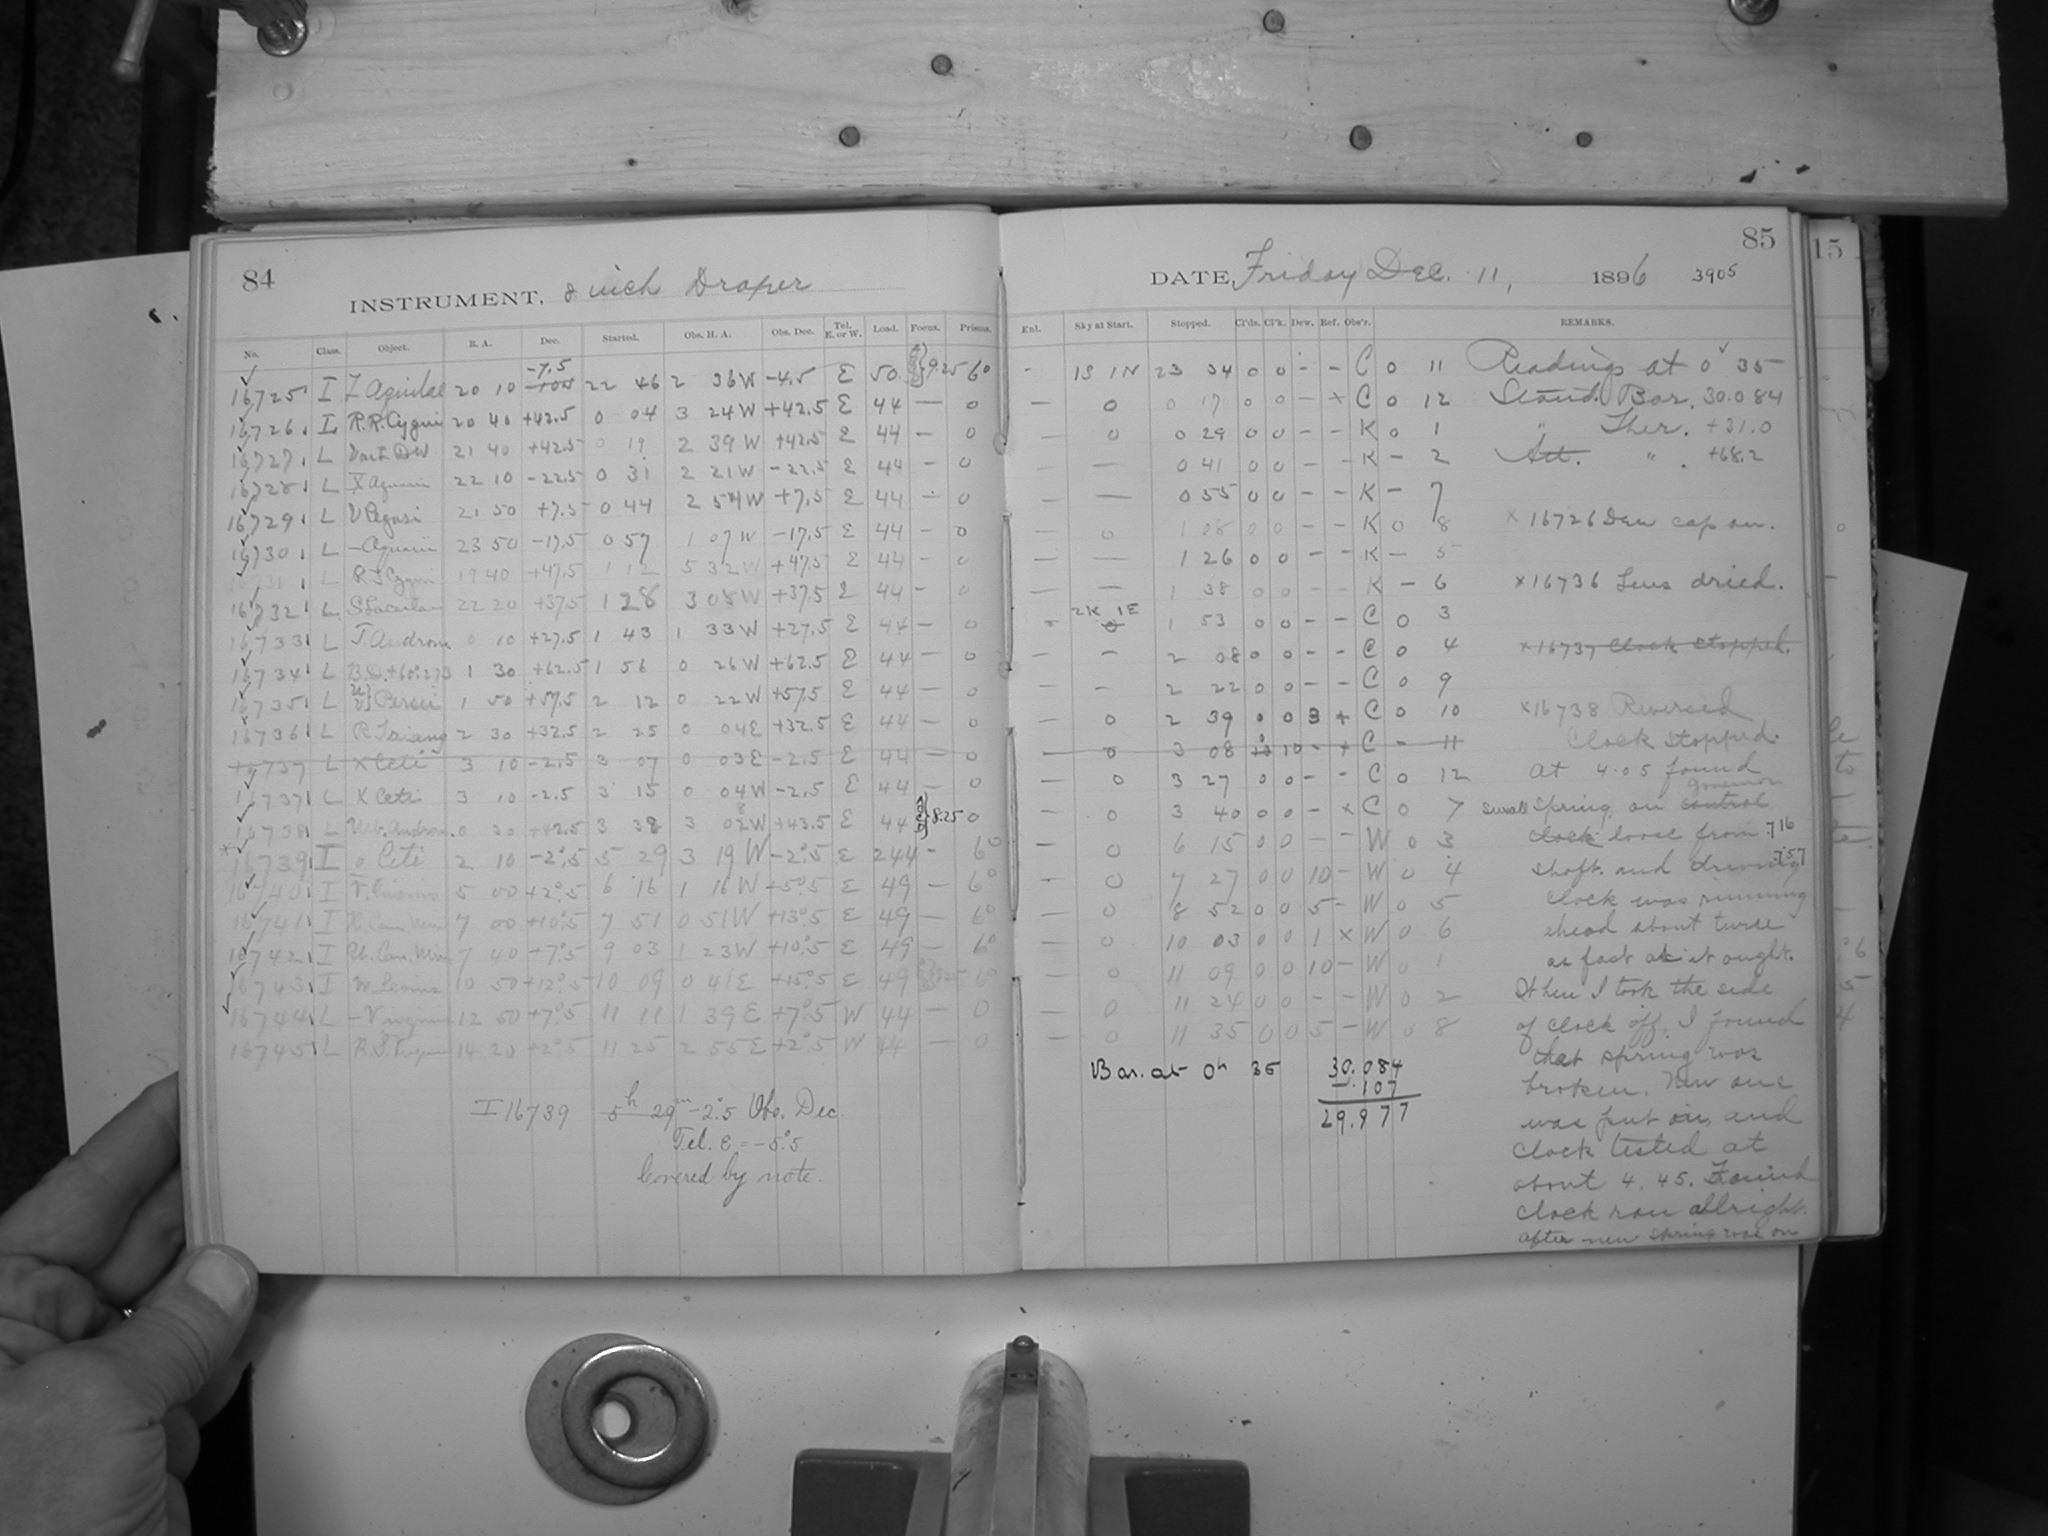 84
INSTRUMENT, 8 inch Draper
No. Class. Object. R. A. Dec. Started. Obs. H. A. Obs. Dec. Tel. E. or W. Load. Focus. Prisms.
-7.5
16725 I Aquilae 20 10 22 46 2 36W -4.5 E 50 9.25 60
16726 L R.R. Cygni 20 40 +42.5 0 04 3 24W +42.5 E 44 — 0
16727 L 21 40 +42.5 0 19 2 39W +42.5 E 44 — 0
16728 L X Aquarii 22 10 -22.5 0 31 2 21W -22.5 E 44 — 0
16729 L V Pegasi 21 50 +7.5 0 44 2 54W +7.5 E 44 — 0
16730 L — Aquarii 23 50 -17.5 0 57 1 07W -17.5 E 44 — 0
16731 L R.S. Cygni 19 40 +47.5 1 12 5 32W +47.5 E 44 — 0
16732 L S Lacertae 22 20 +37.5 1 28 3 05W +37.5 E 44 — 0
16733 L T. Androm 0 10 +27.5 1 43 1 33W +27.5 E 44 — 0
16734 L B.D.+60°273 1 30 +62.5 1 56 0 26W +62.5 E 44 — 0
16735 L Persei 1 50 +57.5 2 12 0 22W +57.5 E 44 — 0
16736 L R Triang 2 30 +32.5 2 25 0 04E +32.5 E 44 — 0
16737 L X Ceti 3 10 -2.5 3 07 0 03E -2.5 E 44 — 0
16737 L X Ceti 3 10 -2.5 3 15 0 04W -2.5 E 44 — 0
16738 L Neb. Androm. 0 30 +42.5 3 38 3 02W +43.5 E 44 8.25 0
*16739 I o Ceti 2 10 -2°.5 5 29 3 19W -2°.5 E 244 — 6°
16740 I V. Orionis 5 00 +2°.5 6 16 1 16W +5°.5 E 49 — 6°
16741 I R. Can. Min 7 00 +10°.5 7 51 0 51W +13°.5 E 49 — 6°
16742 I U. Can. Min 7 40 +7°.5 9 03 1 23W +10°.5 E 49 — 6°
16743 I W. Leonis 10 50 +12°.5 10 09 0 41E +15°.5 E 49 6°
16744 L — Virginis 12 50 +7°.5 11 11 1 39E +7°.5 W 44 — 0
16745 L R.S. Virginis 14 20 +2°.5 11 25 2 55E +2°.5 W 44 — 0
I 16739 5h 29m -2°.5 Obs. Dec.
Tel. E = -5°.5
Covered by note.
85
DATE, Friday Dec. 11, 1896 3905
Enl. Sky at Start. Stopped. Cl'ds. Cl'k. Dew. Ref. Obs'r. REMARKS.
- 1S 1N 23 34 0 0 - - C 0 11 Readings at 0 35
— 0 0 17 0 0 - x C 0 12 Stand. Bar. 30.084
— 0 0 29 0 0 - - K 0 1 " Ther. +31.0
— — 0 41 0 0 - - K - 2 Att. " . +68.2
— — 0 55 0 0 - - K - 7
— 0 1 08 0 0 - - K 0 8 x 16726 Dew cap on.
— — 1 26 0 0 - - K - 5
— — 1 38 0 0 - - K - 6 x 16736 Lens dried.
2K 1E
- 0 1 53 0 0 - - C 0 3
- - 2 08 0 0 - - C 0 4 x 16737 Clock stopped.
- - 2 22 0 0 - - C 0 9
— 0 2 39 0 0 3 + C 0 10 x 16738 Reversed
— 0 3 08 10 - + C - 11 Clock stopped.
— 0 3 27 0 0 - - C 0 12 At 4.05 found
governor
— 0 3 40 0 0 - x C 0 7 small spring, on control
— 0 6 15 0 0 - - W 0 3 clock loose from 716
— 0 7 27 0 0 10 - W 0 4 shaft. and driving 757
— 0 8 52 0 0 5 - W 0 5 clock was running
— 0 10 03 0 0 1 x W 0 6 ahead about twice
— 0 11 09 0 0 10 - W 0 1 as fast as it ought.
— 0 11 24 0 0 - - W 0 2 When I took the side
— 0 11 35 0 0 5 - W 0 8 of clock off, I found
Bar. at 0h 35 30.084 that spring was
-.107 broken. New one
29.977 was put on, and
clock tested at
about 4.45. Found
clock ran allright.
after new spring was on
15